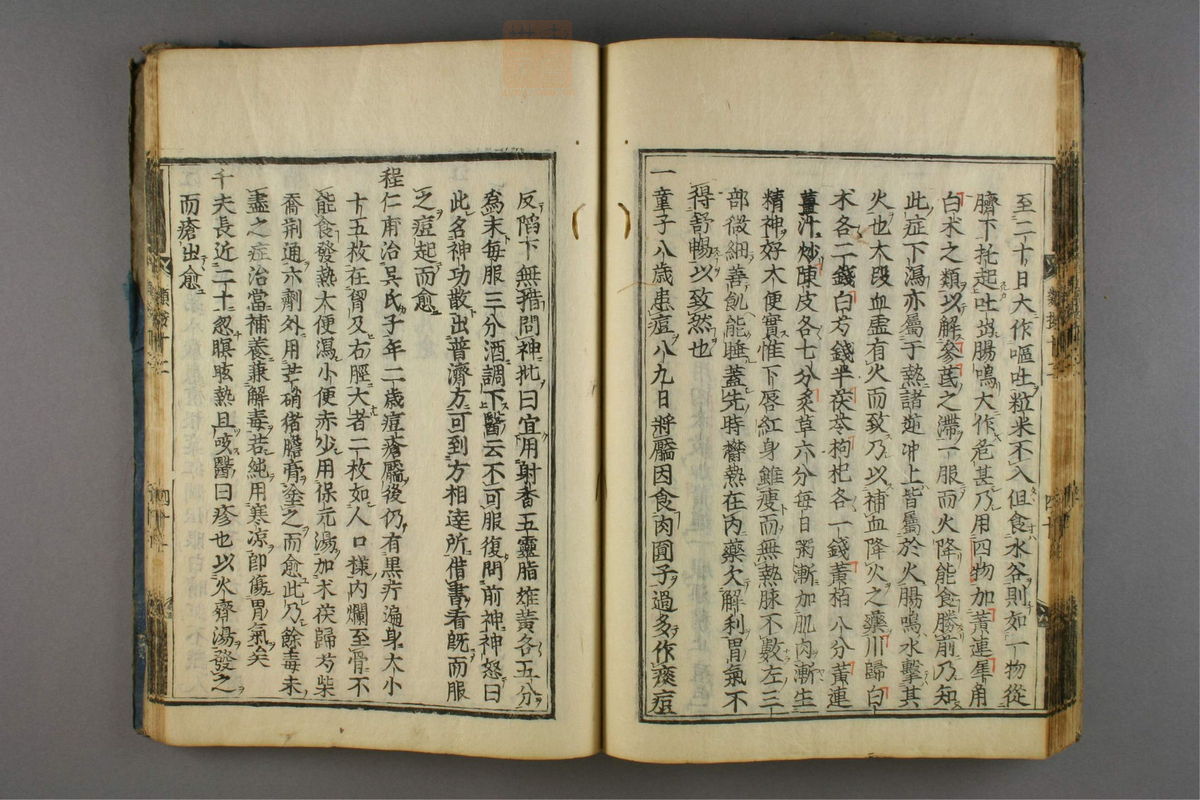 至二十日大作嘔吐粒米不入但食水谷則如一物從
臍下托起吐出腸鳴大作危甚乃用四物加黃連犀角
白朮之類以解參芪之滯一服而火降能食勝前乃知
此症下瀉亦屬于熱諸逆冲上皆屬於火腸鳴水擊其
火也大段血虛有火而致乃以補血降火之藥川歸白
术各二錢白芍錢半茯苓枸杞各一錢黃栢八分黃連
薑汁炒陳皮各七分炙草六分每日粥漸加肌肉漸生
精神好大便實惟下唇紅身雖瘦而無熱脉不數左三
部微細善飢能睡蓋先時欝熱在内藥大解利胃氣不
得舒暢以致然也
一童子八歲患痘八九日將靨因食肉圓子過多作痰痘
反䧟下無措問神批曰宜用射香五靈脂雄黃各五分
爲末每服三分酒調下醫云不可服復問前神神怒曰
此名神功散出普濟方可到方相逵所借書看旣而服
之痘起而愈
程仁甫治吳氏子年二歲痘瘡靨後仍有黒疔遍身大小
十五枚在胷及右脛大者二枚如人口樣内爛至骨不
能食發熱大便瀉小便赤少用保元湯加术茯歸芍柴
喬荆通六劑外用芒硝猪膽膏塗之而愈此乃餘毒未
盡之症治當補養兼解毒若純用寒凉卽傷胃氣矣
千夫長近二十忽瞑眩熱且咳醫曰疹也以火齊湯發之
而瘡出愈